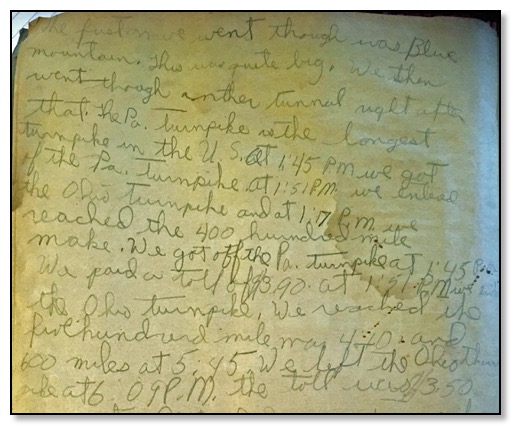 The first one we went though was Blue
mountain. This was quite big. We then
went though another tunnel right after
that. the Pa. turnpike is the longest
turnpike in the U.S. at 1:45 PM we got
off the Pa. turnpike. at 1:51 P.M. we entered
the Ohio turnpike and at 1,17 P.M. we
reached the 400 hundred mile
make. We got off the Pa. turnpike at 1:45 P.m.
We paid a toll of $3.90. at 1:51 P.M. we
the Ohio turnpike, We reached the
five hundred mile 4:40. and
600 miles at 5,45. We left the Ohio
at 6.09 P.M. the toll was $3.50